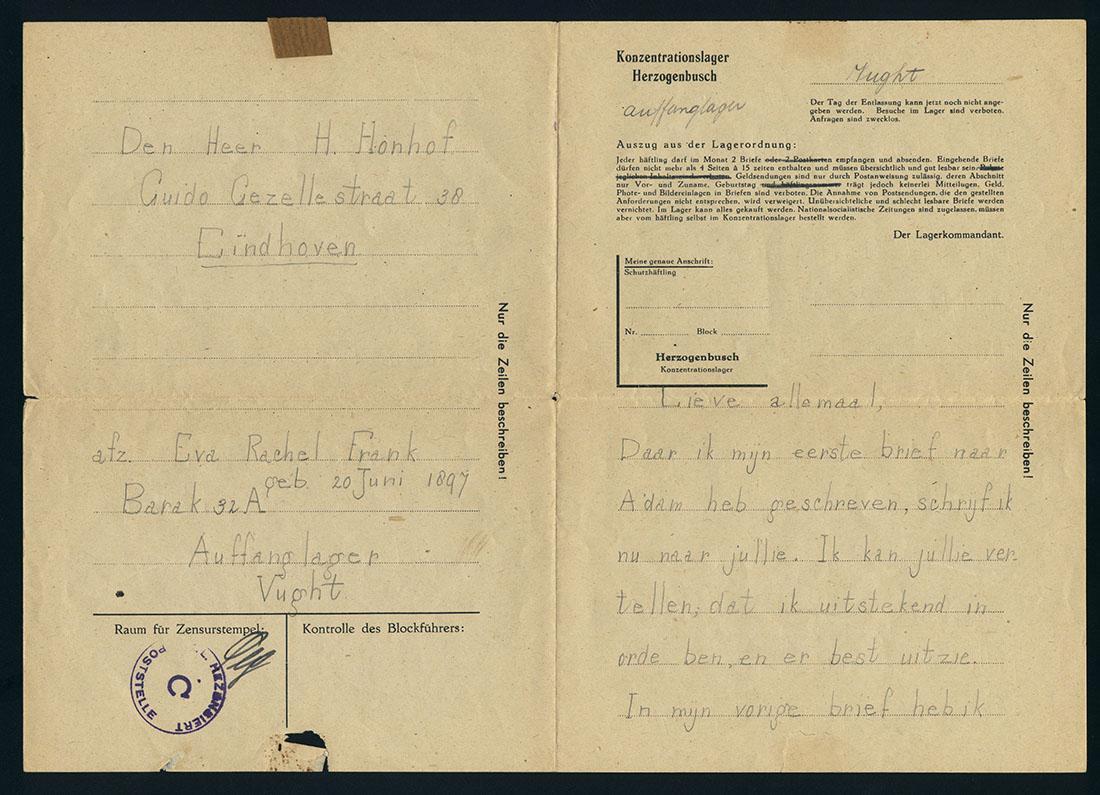 Den Heer H. Honhof
Guido Gezellestraat 38
Eindhoven
Nur die Zeilen beschreiben!
afz. Eva Rachel Frank
geb. 20 Juni 1897
Barak 32A
Auffanglager
Vught
Raum für Zensurstempel:
Kontrolle des Blockführers:
POSTSTELLE
ZENSIERT
C
Konzentrationslager
Herzogenbusch
auffanglager
Vught
Der Tag der Entlassung kann jetzt noch nicht ange-
geben werden. Besuche im Lager sind verboten.
Anfragen sind zwecklos.
Auszug aus der Lagerordnung:
Jeder häftling darf im Monat 2 Briefe oder 2 Postkarten empfangen und absenden. Eingehende Briefe
dürfen nicht mehr als 4 Seiten à 15 zeiten enthalten und müssen übersichtlich und gut lesbar sein.
Geldsendungen sind nur durch Postanweisung zulässig, deren Abschnitt
nur Vor- und Zuname, Geburtstag und häftlingsnummer trägt jedoch keinerlei Mitteilugen. Geld.
Phote- und Bildereinlagen in Briefen sind verboten. Die Annahme von Postsendungen, die den gestellten
Anforderungen nicht entsprechen, wird verweigert. Unübersichteliche und schlecht lesbare Briefe werden
vernichtet. Im Lager kann alles gekauft werden. Nationalsocialistische Zeitungen sind zugelassen, müssen
aber vom häftling selbst im Konzentrationslager bestellt werden.
Der Lagerkommandant.
Meine genaue Anschrift:
Schutzhäftling
Nr. Block
Herzogenbusch
Konzentrationslager
Nur die Zeilen beschreiben!
Lieve allemaal,
Daar ik mijn eerste brief naar
Adam heb geschreven, schrijf ik
nu naar jullie. Ik kan jullie ver-
tellen, dat ik uitstekend in
orde ben, en er best uitzie.
In mijn vorige brief heb ik